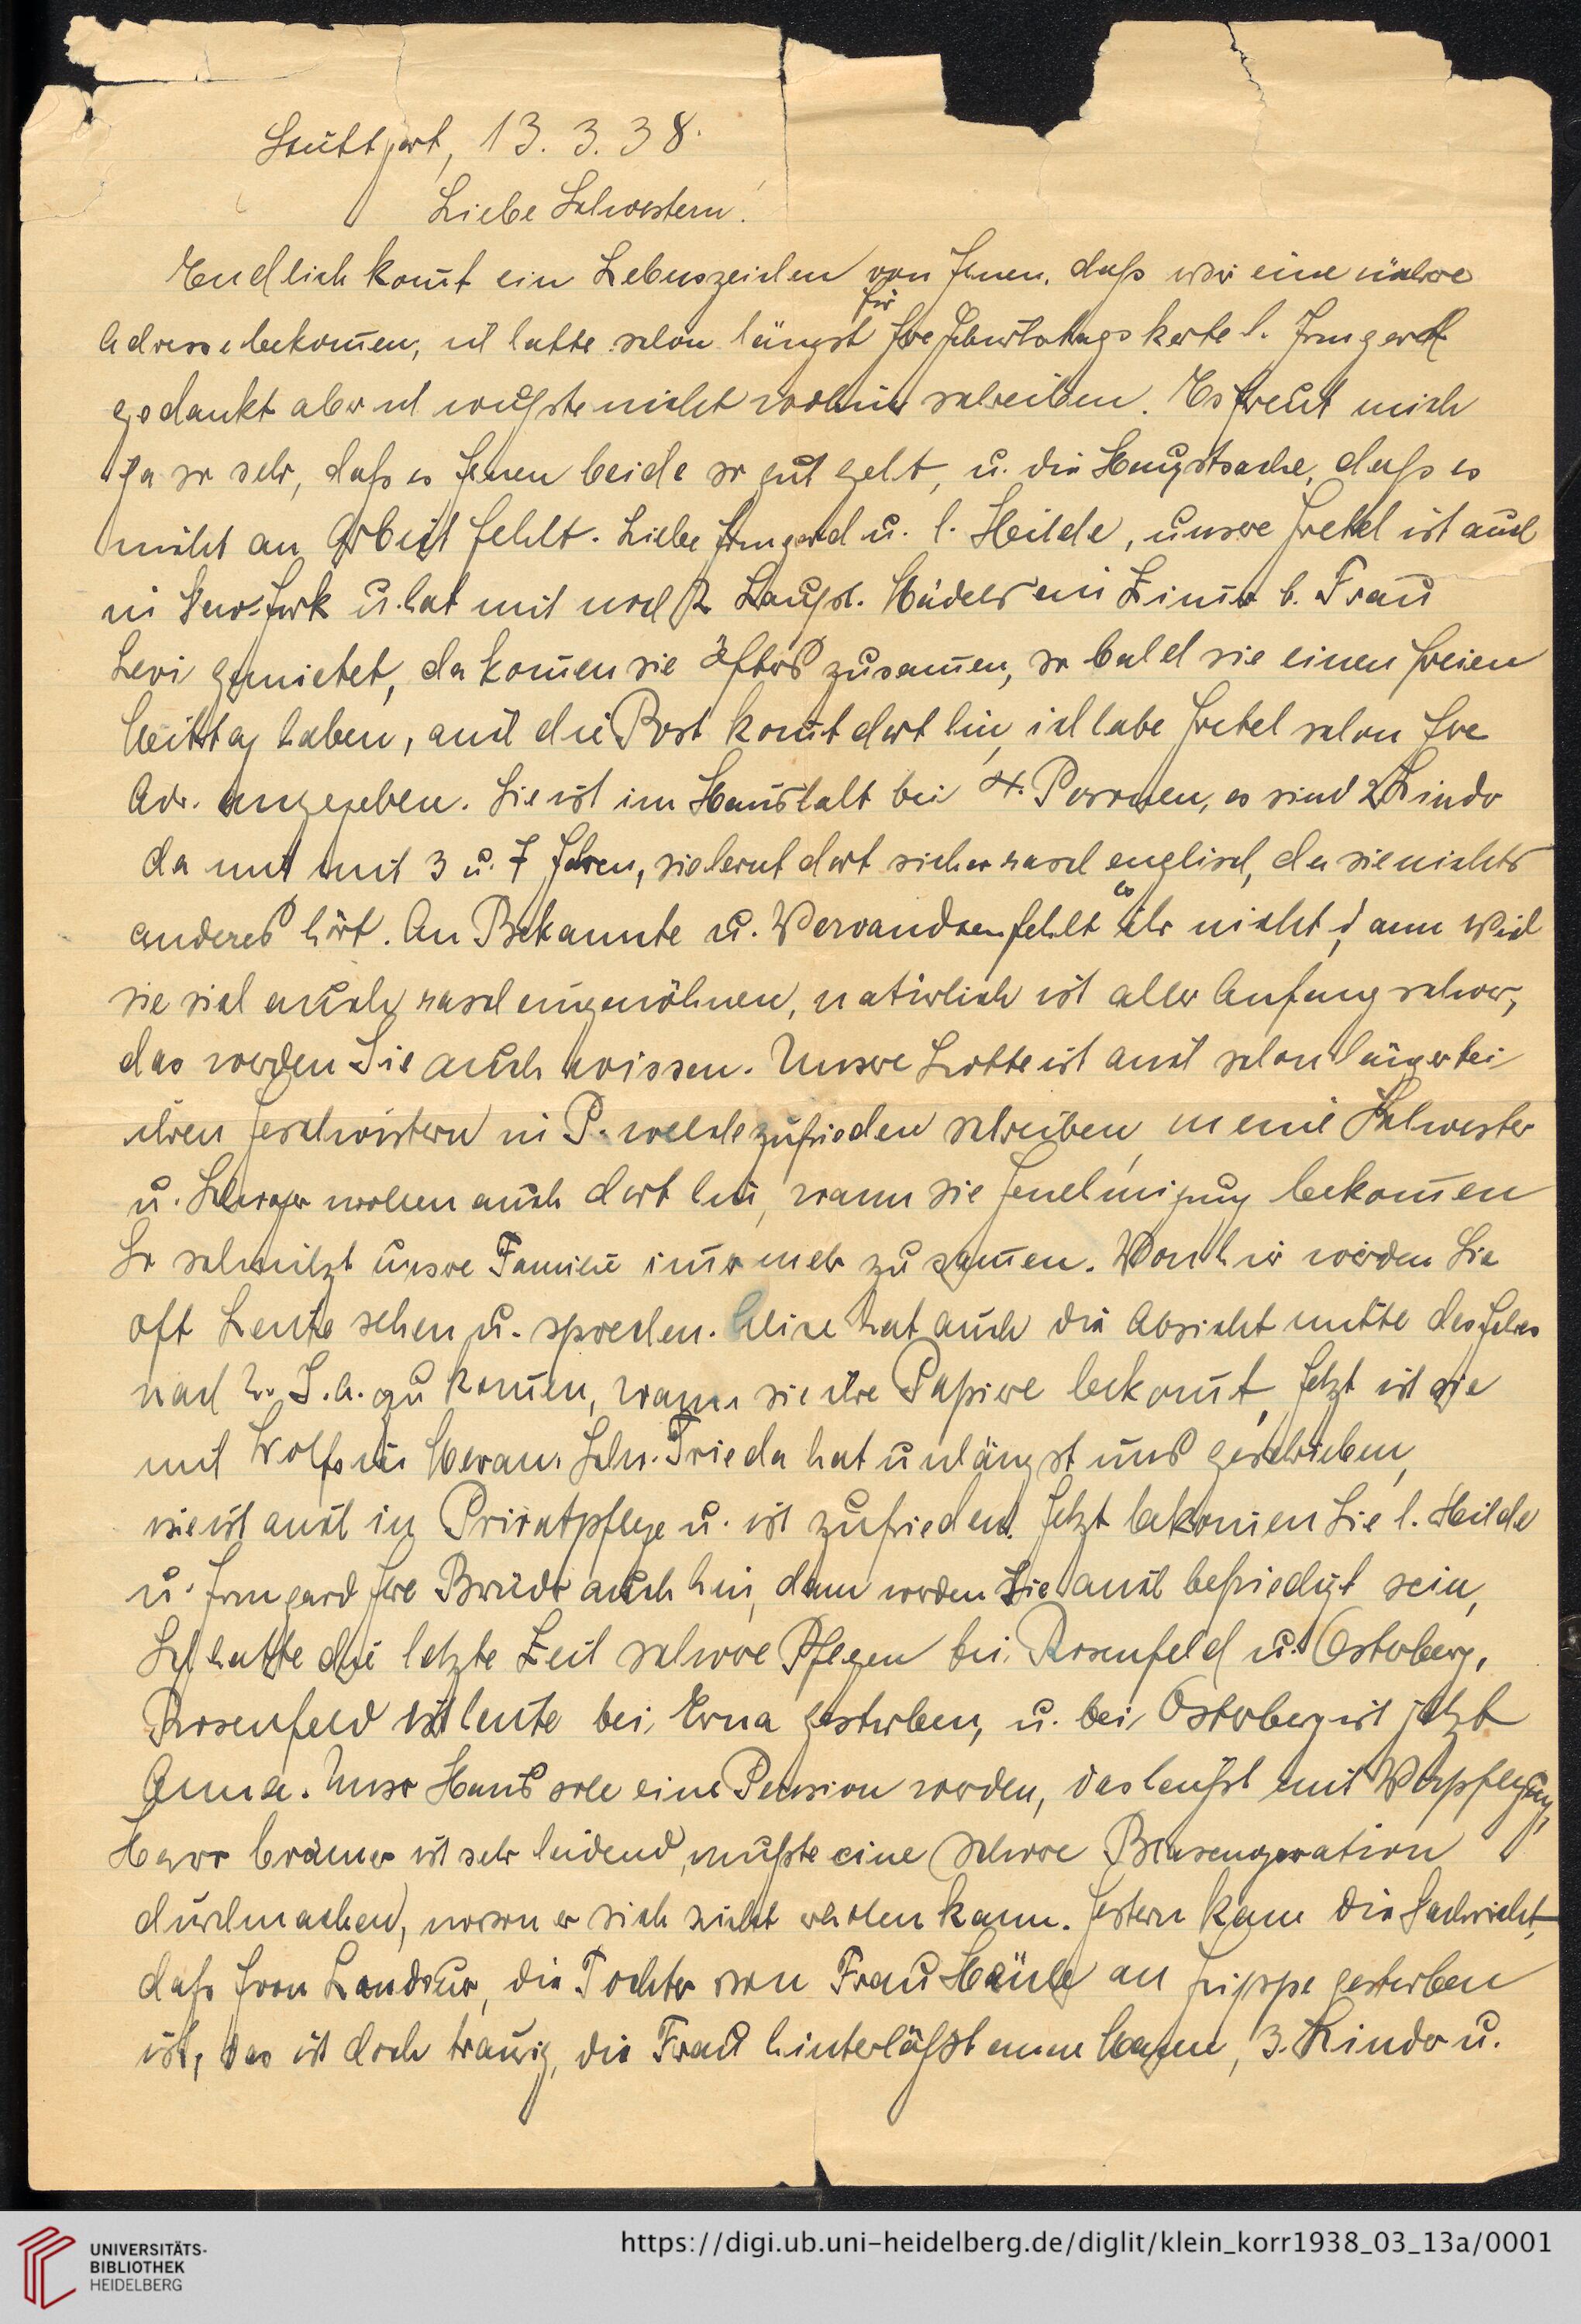 Stuttgart, 13. 3. 38.
Liebe Schwestern!
Endlich kom̄t ein Lebenszeichen von Ihnen, daß wir eine nähere
für
Adresse bekom̄en, ich hatte schon längst Ihre Geburtstagskarte l. Irmgard
gedankt aber ich wußte nicht wohin schreiben. Es freut mich
ja so sehr, daß es Ihnen beide so gut geht, u. die Hauptsache, daß es
nicht an Arbeit fehlt. Liebe Irmgard u. l. Hilde, unsere Gretel ist auch
in New-York u. hat mit noch 2 Mädels ein Zim̄er b. Frau
Levi gemietet, da kom̄en sie öfters zusam̄en, so bald sie einen freien
Mittag haben, auch die Post kom̄t dort hin, ich habe Gretel schon Ihre
Adr. angegeben. Sie ist im Haushalt bei 4. Personen, es sind 2 Kinder
da mit 3 u. 7 Jahren, sie lernt dort sicher rasch englisch, da sie nichts
es
anderes hört. An Bekannte u. Verwandten fehlt ihr nicht, dann wird
sie sich auch rasch eingewöhnen, natürlich ist aller Anfang schwer,
das werden Sie auch wissen. Unsere Lotte ist auch schon länger bei
ihren Geschwistern in P. welche zufrieden schreiben, meine Schwester
u. Schwager wollen auch dort hin, wann sie Genehmigung bekom̄en
So schmilzt unsere Familie im̄er mehr zusam̄en. Von hier werden Sie
oft Leute sehen u. sprechen. Alice hat auch die Absicht mitte des Jahres
nach U. S. A. zu kom̄en, wann sie ihre Papiere bekom̄t, Jetzt ist sie
mit Wolfs in Meran. Schw. Frieda hat unlängst uns geschrieben,
sie ist auch in Privatpflege u. ist zufrieden. Jetzt bekom̄en Sie l. Hilde
u. Irmgard Ihre Brüder auch hin, dann werden Sie auch befriedigt sein,
Ich hatte die letzte Zeit schwere Pflegen bei Rosenfeld u. Osterberg,
Rosenfeld ist heute bei Erna gestorben, u. bei Osterberg ist jetzt
Anna. Unser Haus soll eine Pension werden, das heißt mit Verpflegung,
Herr ist sehr leidend, mußte eine schwere Blasenoperation
durchmachen, wovon er sich nicht erholen kann. Gestern kam die Nachricht,
daß Frau Landauer, die Tochter von Frau an Grippe gestorben
ist, das ist doch traurig, die Frau hinterläßt einen Mann, 3. Kinder u.
UNIVERSITÄTS-
BIBLIOTHEK
HEIDELBERG
https://digi.ub.uni-heidelberg.de/diglit/klein_korr1938_03_13a/0001